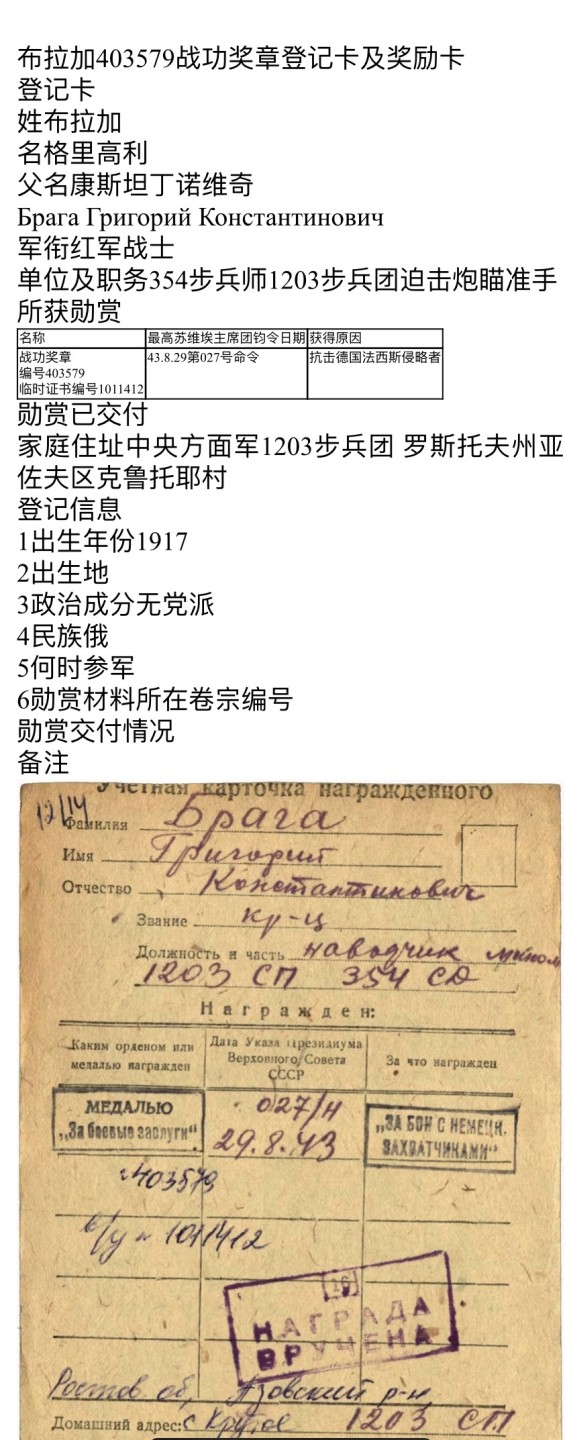 布拉加403579战功奖章登记卡及奖励卡
登记卡
姓布拉加
名格里高利
父名康斯坦丁诺维奇
Брага Григорий Константинович
军衔红军战士
单位及职务354步兵师1203步兵团迫击炮瞄准手
所获勋赏
名称 最高苏维埃主席团钧令日期 获得原因
战功奖章 43.8.29第027号命令 抗击德国法西斯侵略者
编号403579
临时证书编号1011412
勋赏已交付
家庭住址中央方面军1203步兵团 罗斯托夫州亚
佐夫区克鲁托耶村
登记信息
1出生年份1917
2出生地
3政治成分无党派
4民族俄
5何时参军
6勋赏材料所在卷宗编号
勋赏交付情况
备注
Учетная карточка награжденного
12/14
Фамилия Брага
Имя Григорий
Отчество Константинович
Звание кр-ц
Должность и часть наводчик
1203 СП 354 СД
Награжден:
Каким орденом или медалью награжден
Дата Указа Президиума Верховного Совета СССР
За что награжден
МЕДАЛЬЮ
„За боевые заслуги“
027/н
29.8.43
„ЗА БОИ С НЕМЕЦК.
ЗАХВАТЧИКАМИ“
403579
в/у н 1011412
НАГРАДА
ВРУЧЕНА
Ростов об, Азовский р-н
Домашний адрес: с Крутое 1203 СП